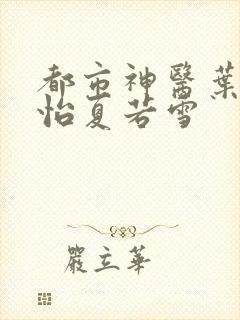 都市神醫葉
怡夏若雪
嚴立華